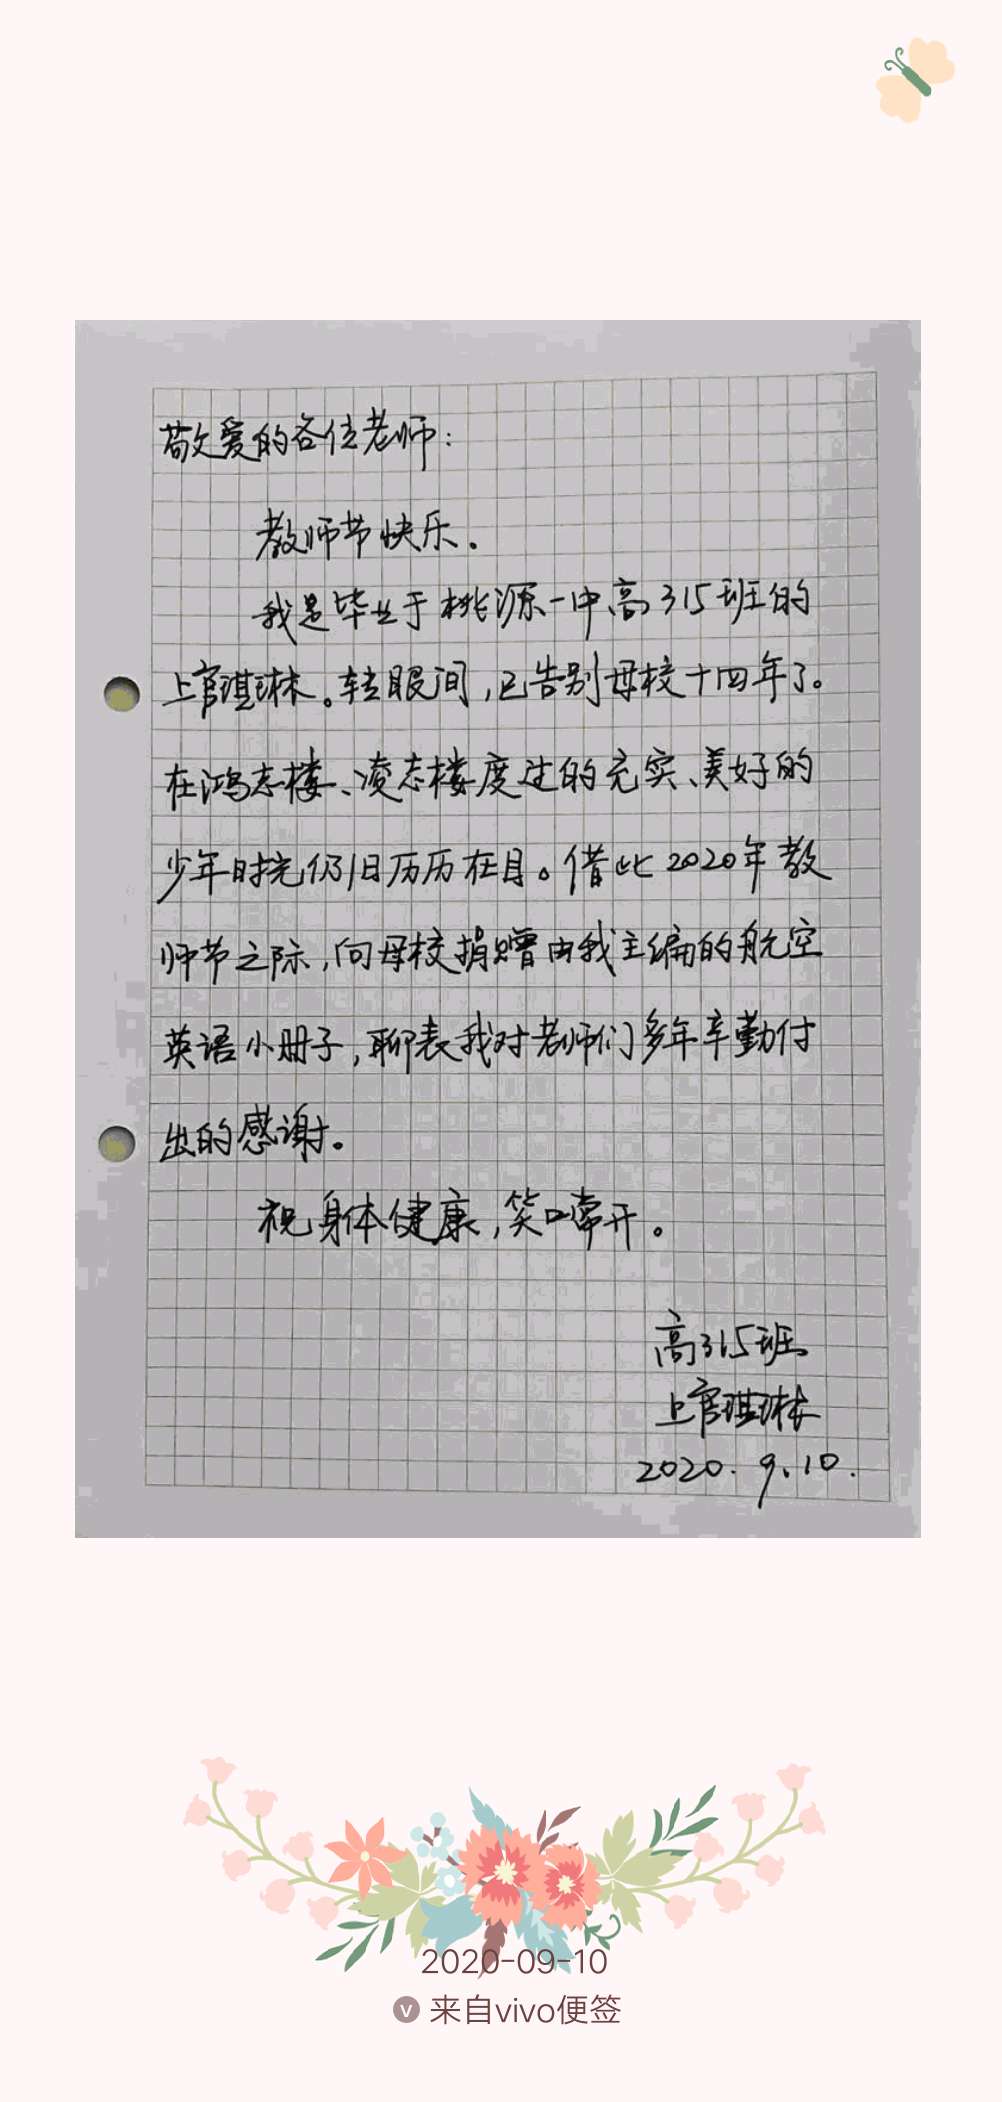 敬爱的各位老师:
教师节快乐.
我是毕业于桃源一中高315班的
上官琪琳。转眼间,已告别母校十四年了。
在鸿志楼、凌志楼度过的充实、美好的
少年时光仍旧历历在目。借此2020年教
师节之际,向母校捐赠由我主编的航空
英语小册子,聊表我对老师们多年辛勤付
出的感谢。
祝身体健康,笑口常开。
高315班
上官琪琳
2020.9.10.
2020-09-10
v 来自vivo便签